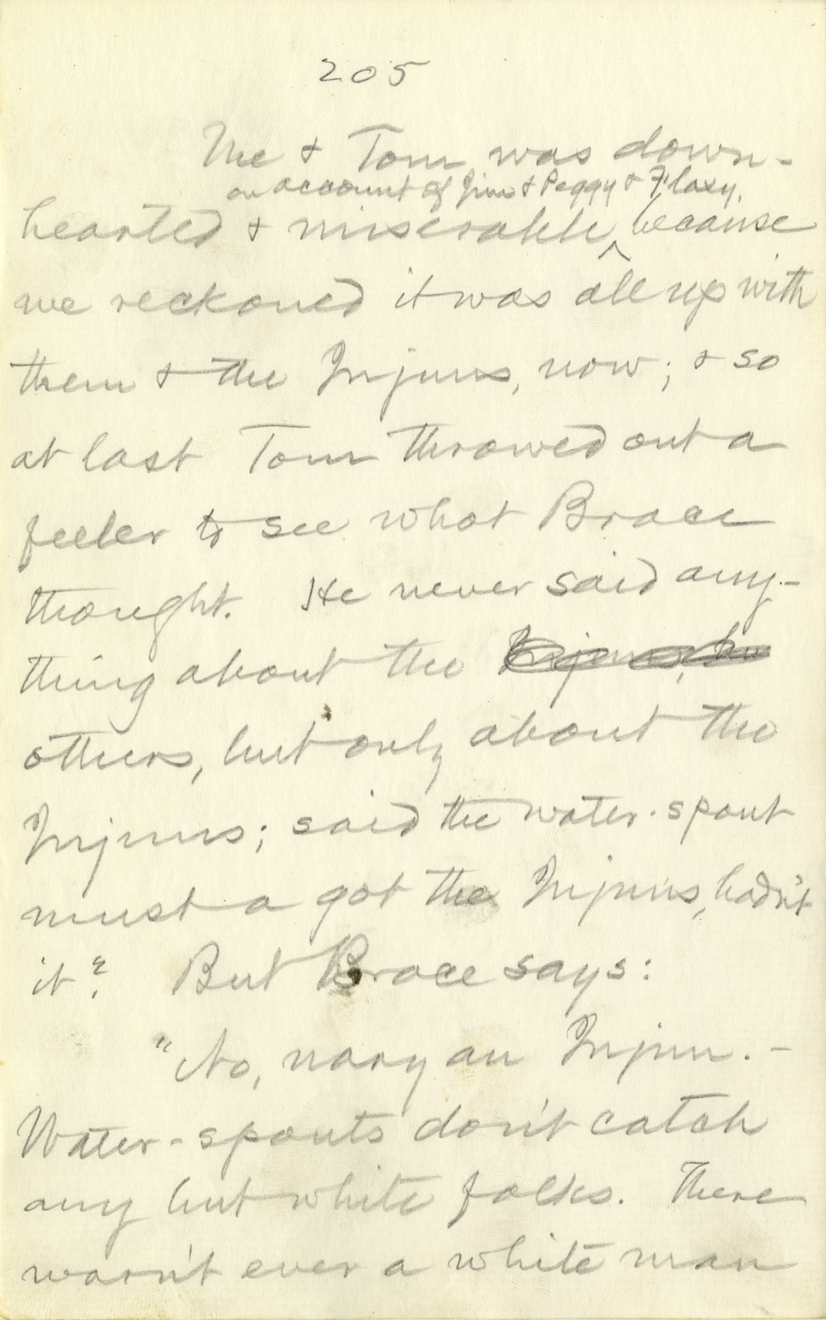 205
Me & Tom was down-
on account of Jim & Peggy & Flaxy,
hearted & miserable ‸ because
we reckoned it was all up with
them & the Injuns, now; & so
at last Tom throwed out a
feeler to see what Brace
thought. He never said any-
thing about the
others, but only about the
Injuns; said the water-spout
must a got the Injuns, hadn't
it? But Brace says:
"No, nary an Injun. –
Water-spouts don't catch
any but white folks. There
warn't ever a white man